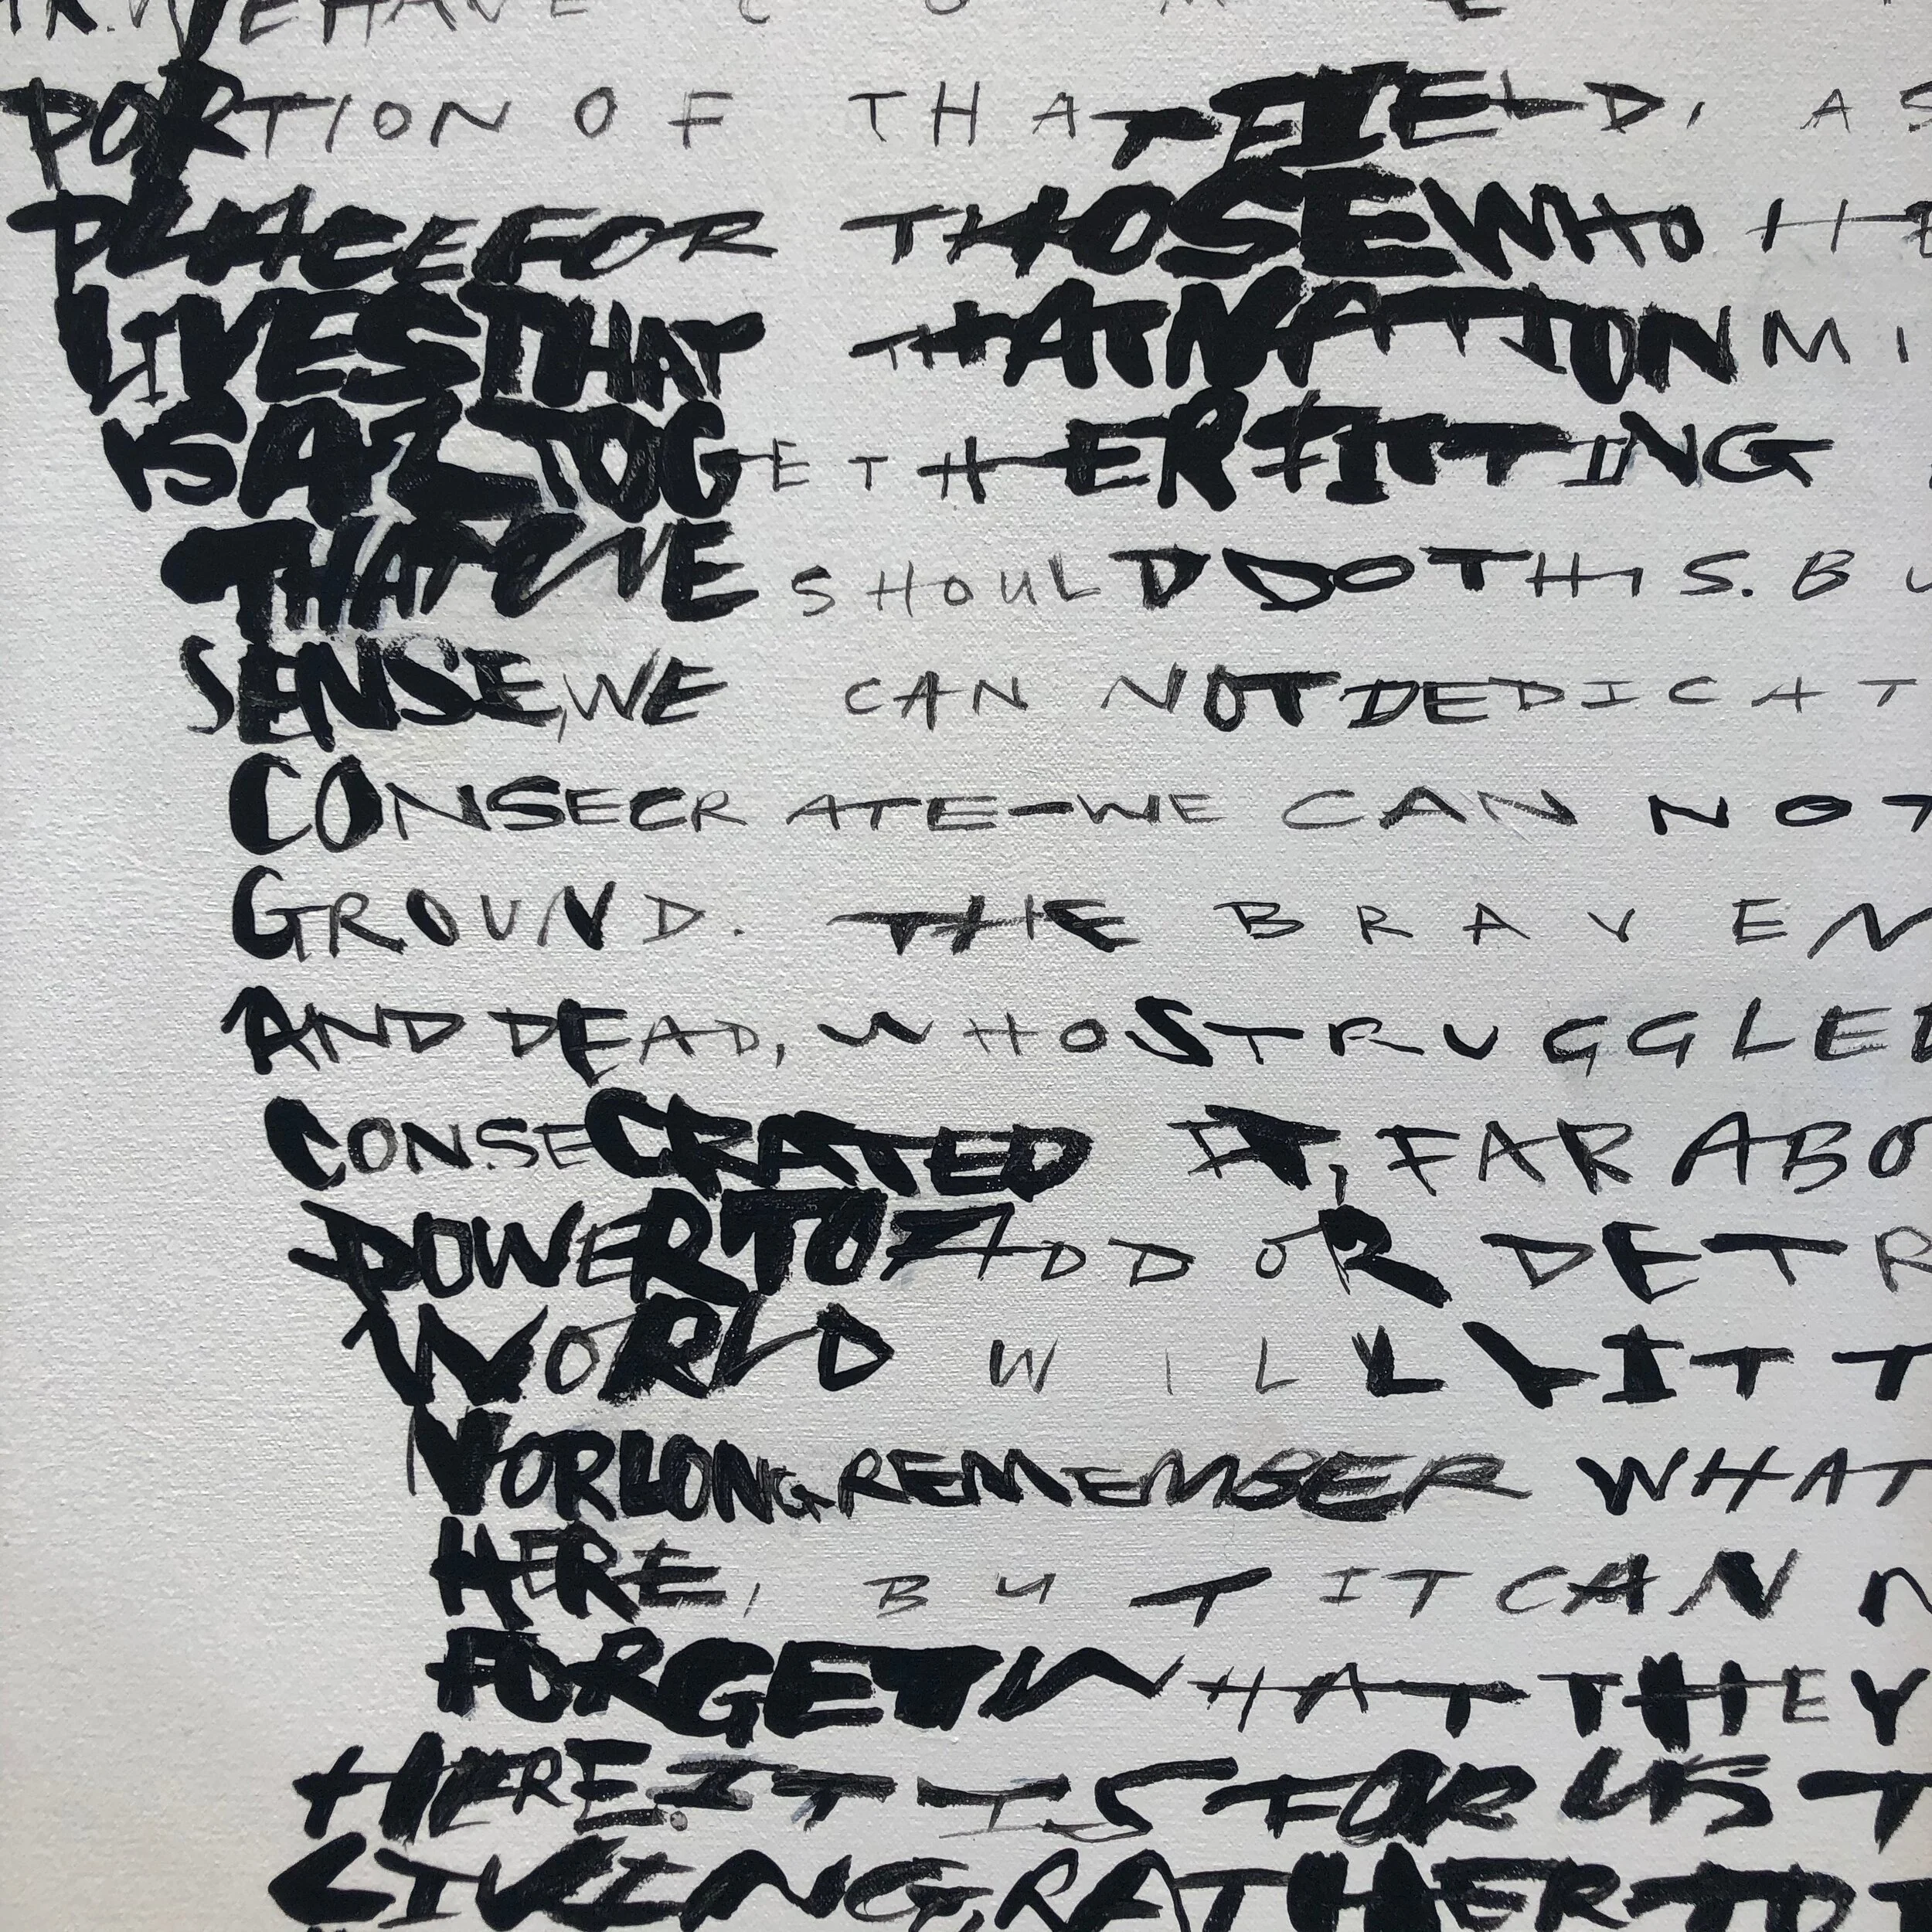 WE HAVE COME
PORTION OF THAT FIELD, AS
PLACE FOR THOSE WHO HE
LIVES THAT THAT NATION MI
IS ALTOGETHER FITTING
THAT WE SHOULD DO THIS. BU
SENSE, WE CAN NOT DEDICAT
CONSECRATE-WE CAN NOT
GROUND. THE BRAVE N
AND DEAD, WHO STRUGGLED
CONSECRATED IT, FAR ABO
POWER TO ADD OR DETR
WORLD WILL LITT
NOR LONG REMEMBER WHAT
HERE, BUT IT CAN N
FORGET WHAT THEY
HERE. IT IS FOR US T
LIVING, RATHER TO